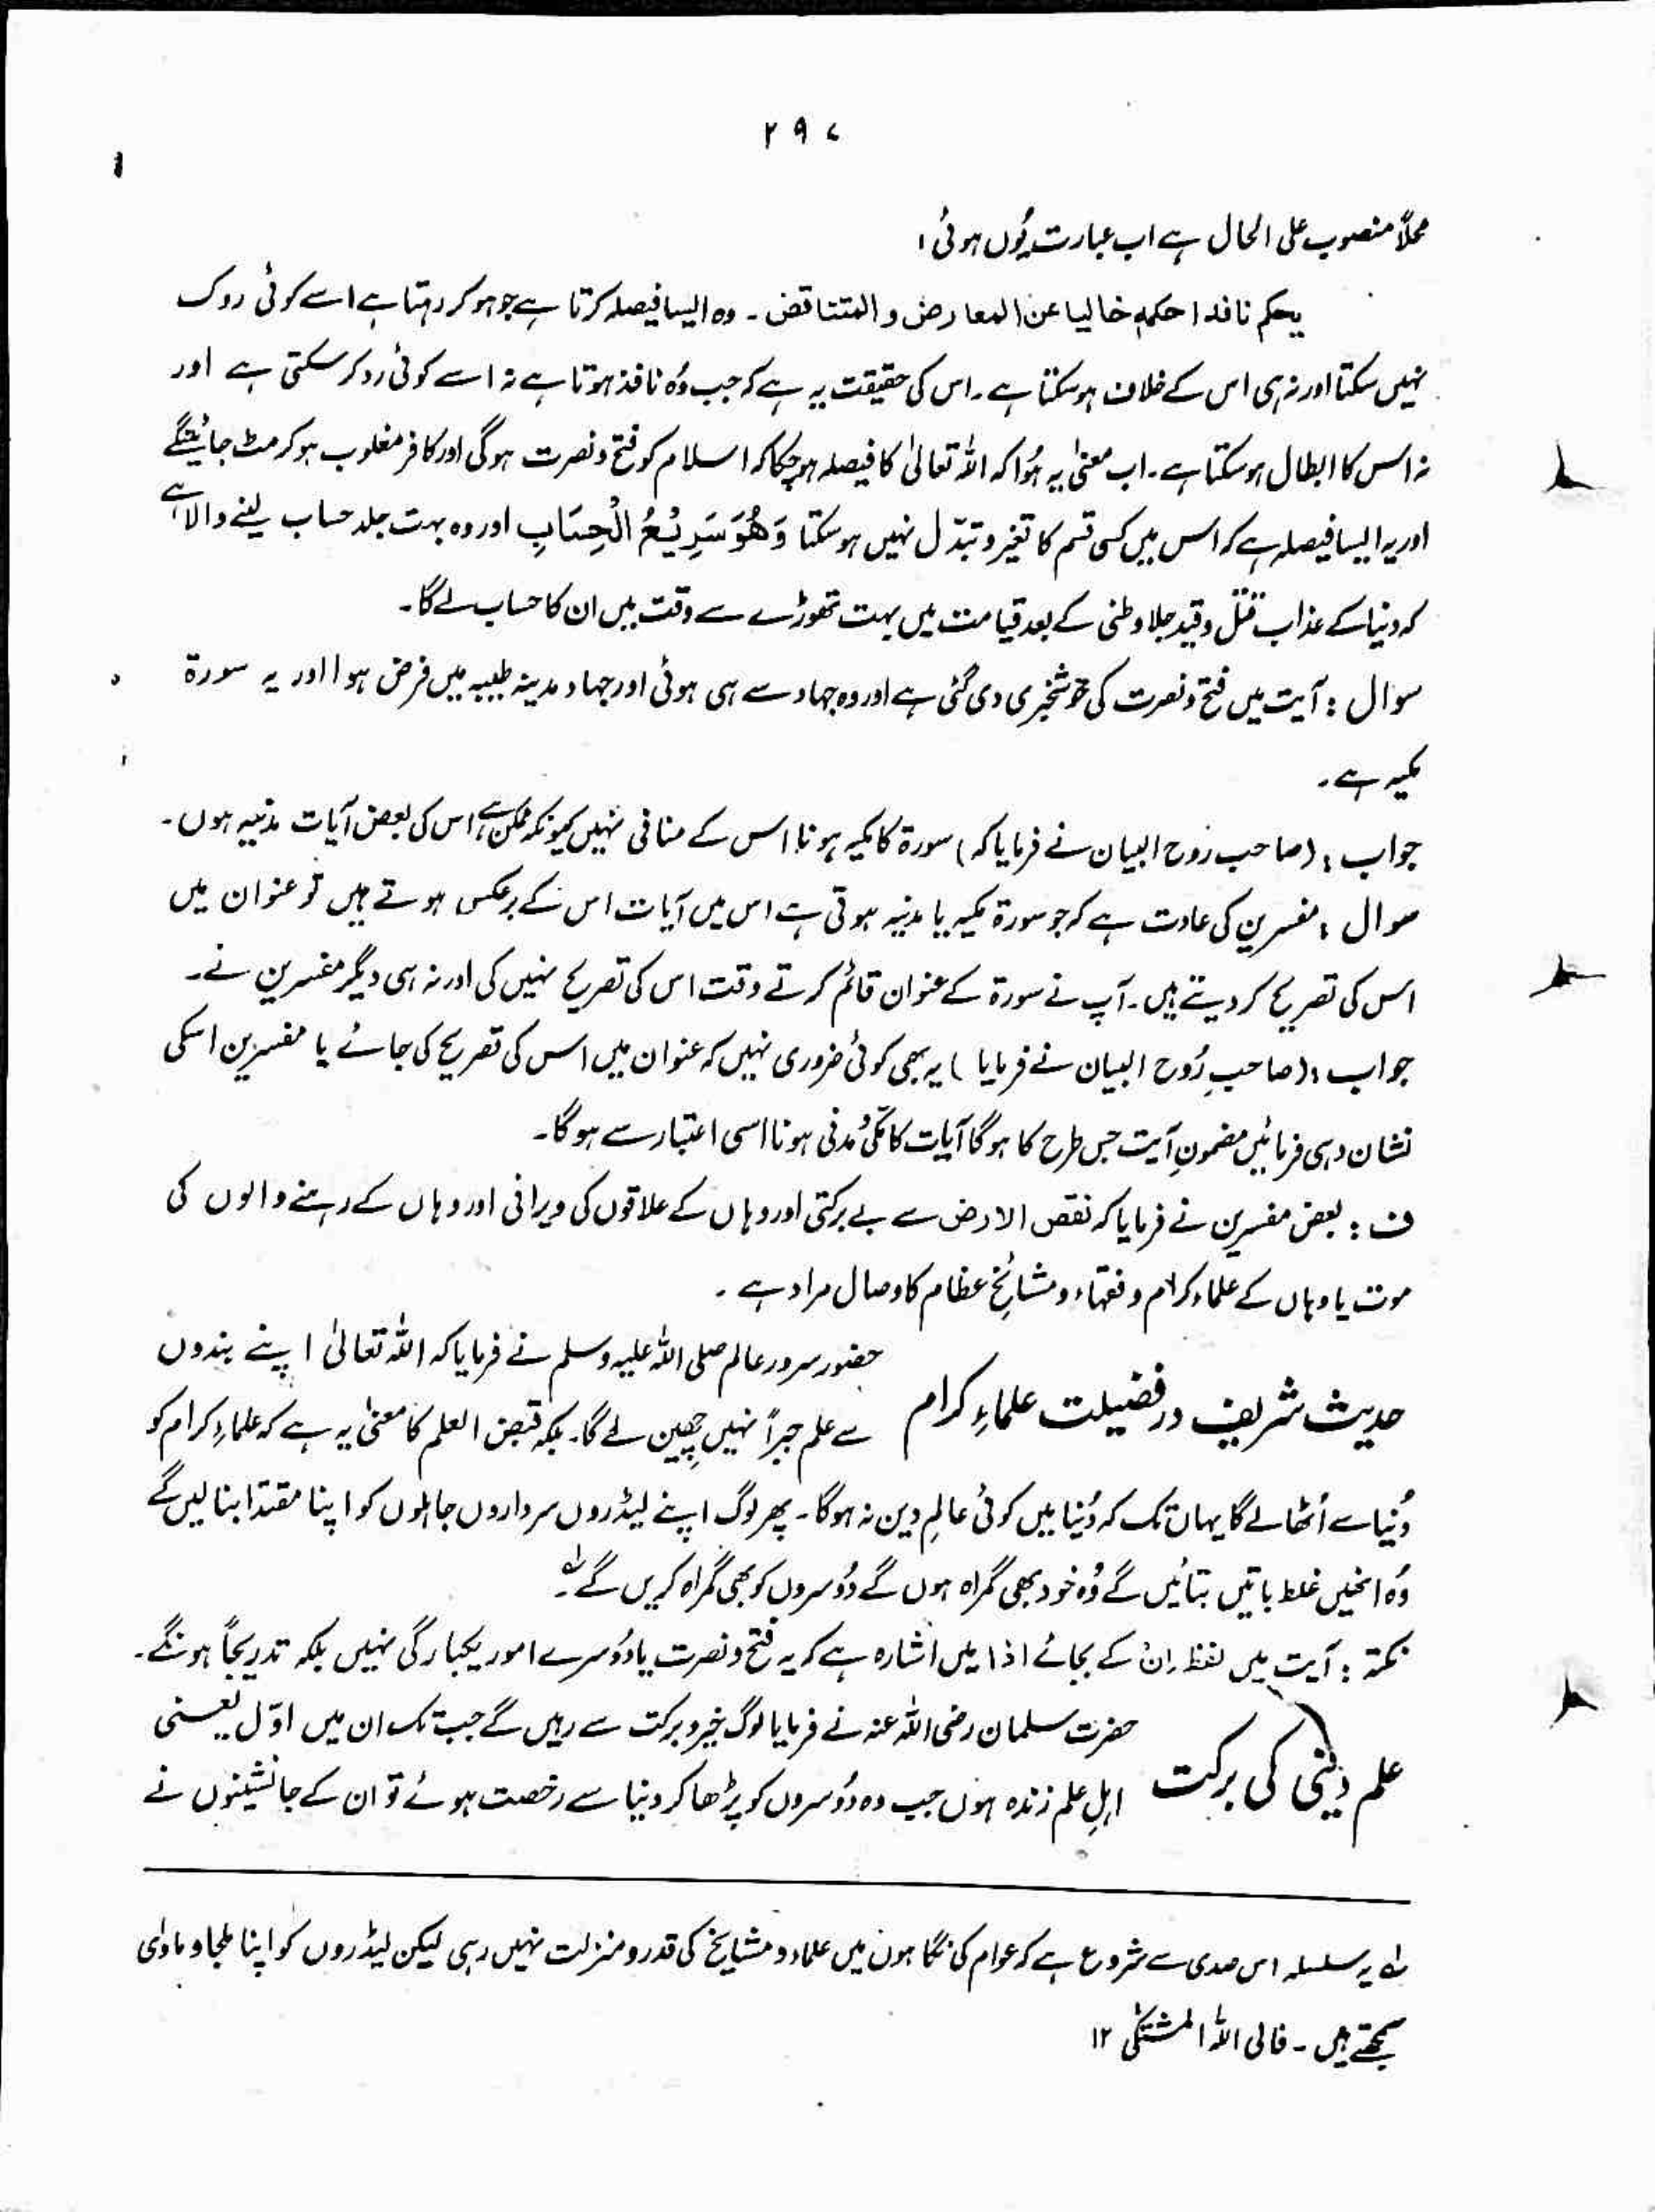 ۲۹۷
محلاً منصوب علی الحال ہے اب عبارت یُوں ہوئی :
یحکم نافذا حکمہ خالیا عن المعارض و المتناقض ۔ وہ ایسا فیصلہ کرتا ہے جو ہو کر رہتا ہے اسے کوئی روک
نہیں سکتا اور نہ ہی اس کے خلاف ہو سکتا ہے ۔ اس کی حقیقت یہ ہے کہ جب وُہ نافذ ہوتا ہے نہ اسے کوئی رد کر سکتی ہے اور
نہ اس کا ابطال ہو سکتا ہے ۔ اب معنیٰ یہ ہُوا کہ اللہ تعالیٰ کا فیصلہ ہو چکا کہ اسلام کو فتح و نصرت ہوگی اور کافر مغلوب ہو کر مٹ جائیں گے
اور یہ ایسا فیصلہ ہے کہ اس میں کسی قسم کا تغیر و تبدّل نہیں ہو سکتا وَھُوَ سَرِیْعُ الْحِسَابِ اور وہ بہت جلد حساب لینے والا ہے
کہ دنیا کے عذاب قتل و قید جلا وطنی کے بعد قیامت میں بہت تھوڑے سے وقت میں ان کا حساب لے گا ۔
سوال : آیت میں فتح و نصرت کی خوشخبری دی گئی ہے اور وہ جہاد سے ہی ہوئی اور جہاد مدینہ طیبہ میں فرض ہوا اور یہ سورۃ
مکیہ ہے ۔
جواب : (صاحب رُوح البیان نے فرمایا کہ) سورۃ کا مکیہ ہونا اس کے منافی نہیں کیونکہ ممکن ہے اس کی بعض آیات مدنیہ ہوں ۔
سوال : مفسرین کی عادت ہے کہ جو سورۃ مکیہ یا مدنیہ ہوتی ہے اس میں آیات اس کے برعکس ہوتے ہیں تو عنوان میں
اس کی تصریح کر دیتے ہیں ۔ آپ نے سورۃ کے عنوان قائم کرتے وقت اس کی تصریح نہیں کی اور نہ ہی دیگر مفسرین نے ۔
جواب : (صاحبِ رُوح البیان نے فرمایا) یہ بھی کوئی ضروری نہیں کہ عنوان میں اس کی تصریح کی جائے یا مفسرین اسکی
نشان دہی فرمائیں مضمونِ آیت جس طرح کا ہوگا آیات کا مکّی مدنی ہونا اسی اعتبار سے ہوگا ۔
ف : بعض مفسرین نے فرمایا کہ نقص الارض سے بے برکتی اور وہاں کے علاقوں کی ویرانی اور وہاں کے رہنے والوں کی
موت یا وہاں کے علماء کرام و فقہاء و مشائخ عظام کا وصال مراد ہے ۔
حدیث شریف در فضیلت علماءِ کرام حضور سرور عالم صلی اللہ علیہ وسلم نے فرمایا کہ اللہ تعالیٰ اپنے بندوں
سے علم جبراً نہیں چھین لے گا ۔ بلکہ قبض العلم کا معنیٰ یہ ہے کہ علماءِ کرام کو
دُنیا سے اُٹھا لے گا یہاں تک کہ دُنیا میں کوئی عالمِ دین نہ ہوگا ۔ پھر لوگ اپنے لیڈروں سرداروں جاہلوں کو اپنا مقتدا بنا لیں گے
وُہ انھیں غلط باتیں بتائیں گے وُہ خود بھی گمراہ ہوں گے دُوسروں کو بھی گمراہ کریں گے لہ ۔
نکتہ : آیت میں لفظ اِنْ کے بجائے اذا میں اشارہ ہے کہ یہ فتح و نصرت یا دُوسرے امور یکبارگی نہیں بلکہ تدریجاً ہونگے ۔
علم دینی کی برکت حضرت سلمان رضی اللہ عنہ نے فرمایا لوگ خیر و برکت سے رہیں گے جب تک ان میں اوّل یعنی
اہلِ علم زندہ ہوں جب وہ دُوسروں کو پڑھا کر دنیا سے رخصت ہوئے تو ان کے جانشینوں نے
لہ یہ سلسلہ اس صدی سے شروع ہے کہ عوام کی نگاہوں میں علماء و مشایخ کی قدر و منزلت نہیں رہی لیکن لیڈروں کو اپنا ملجا و ماوٰی
سمجھتے ہیں ۔ فالی اللہ المشتکیٰ ۱۲